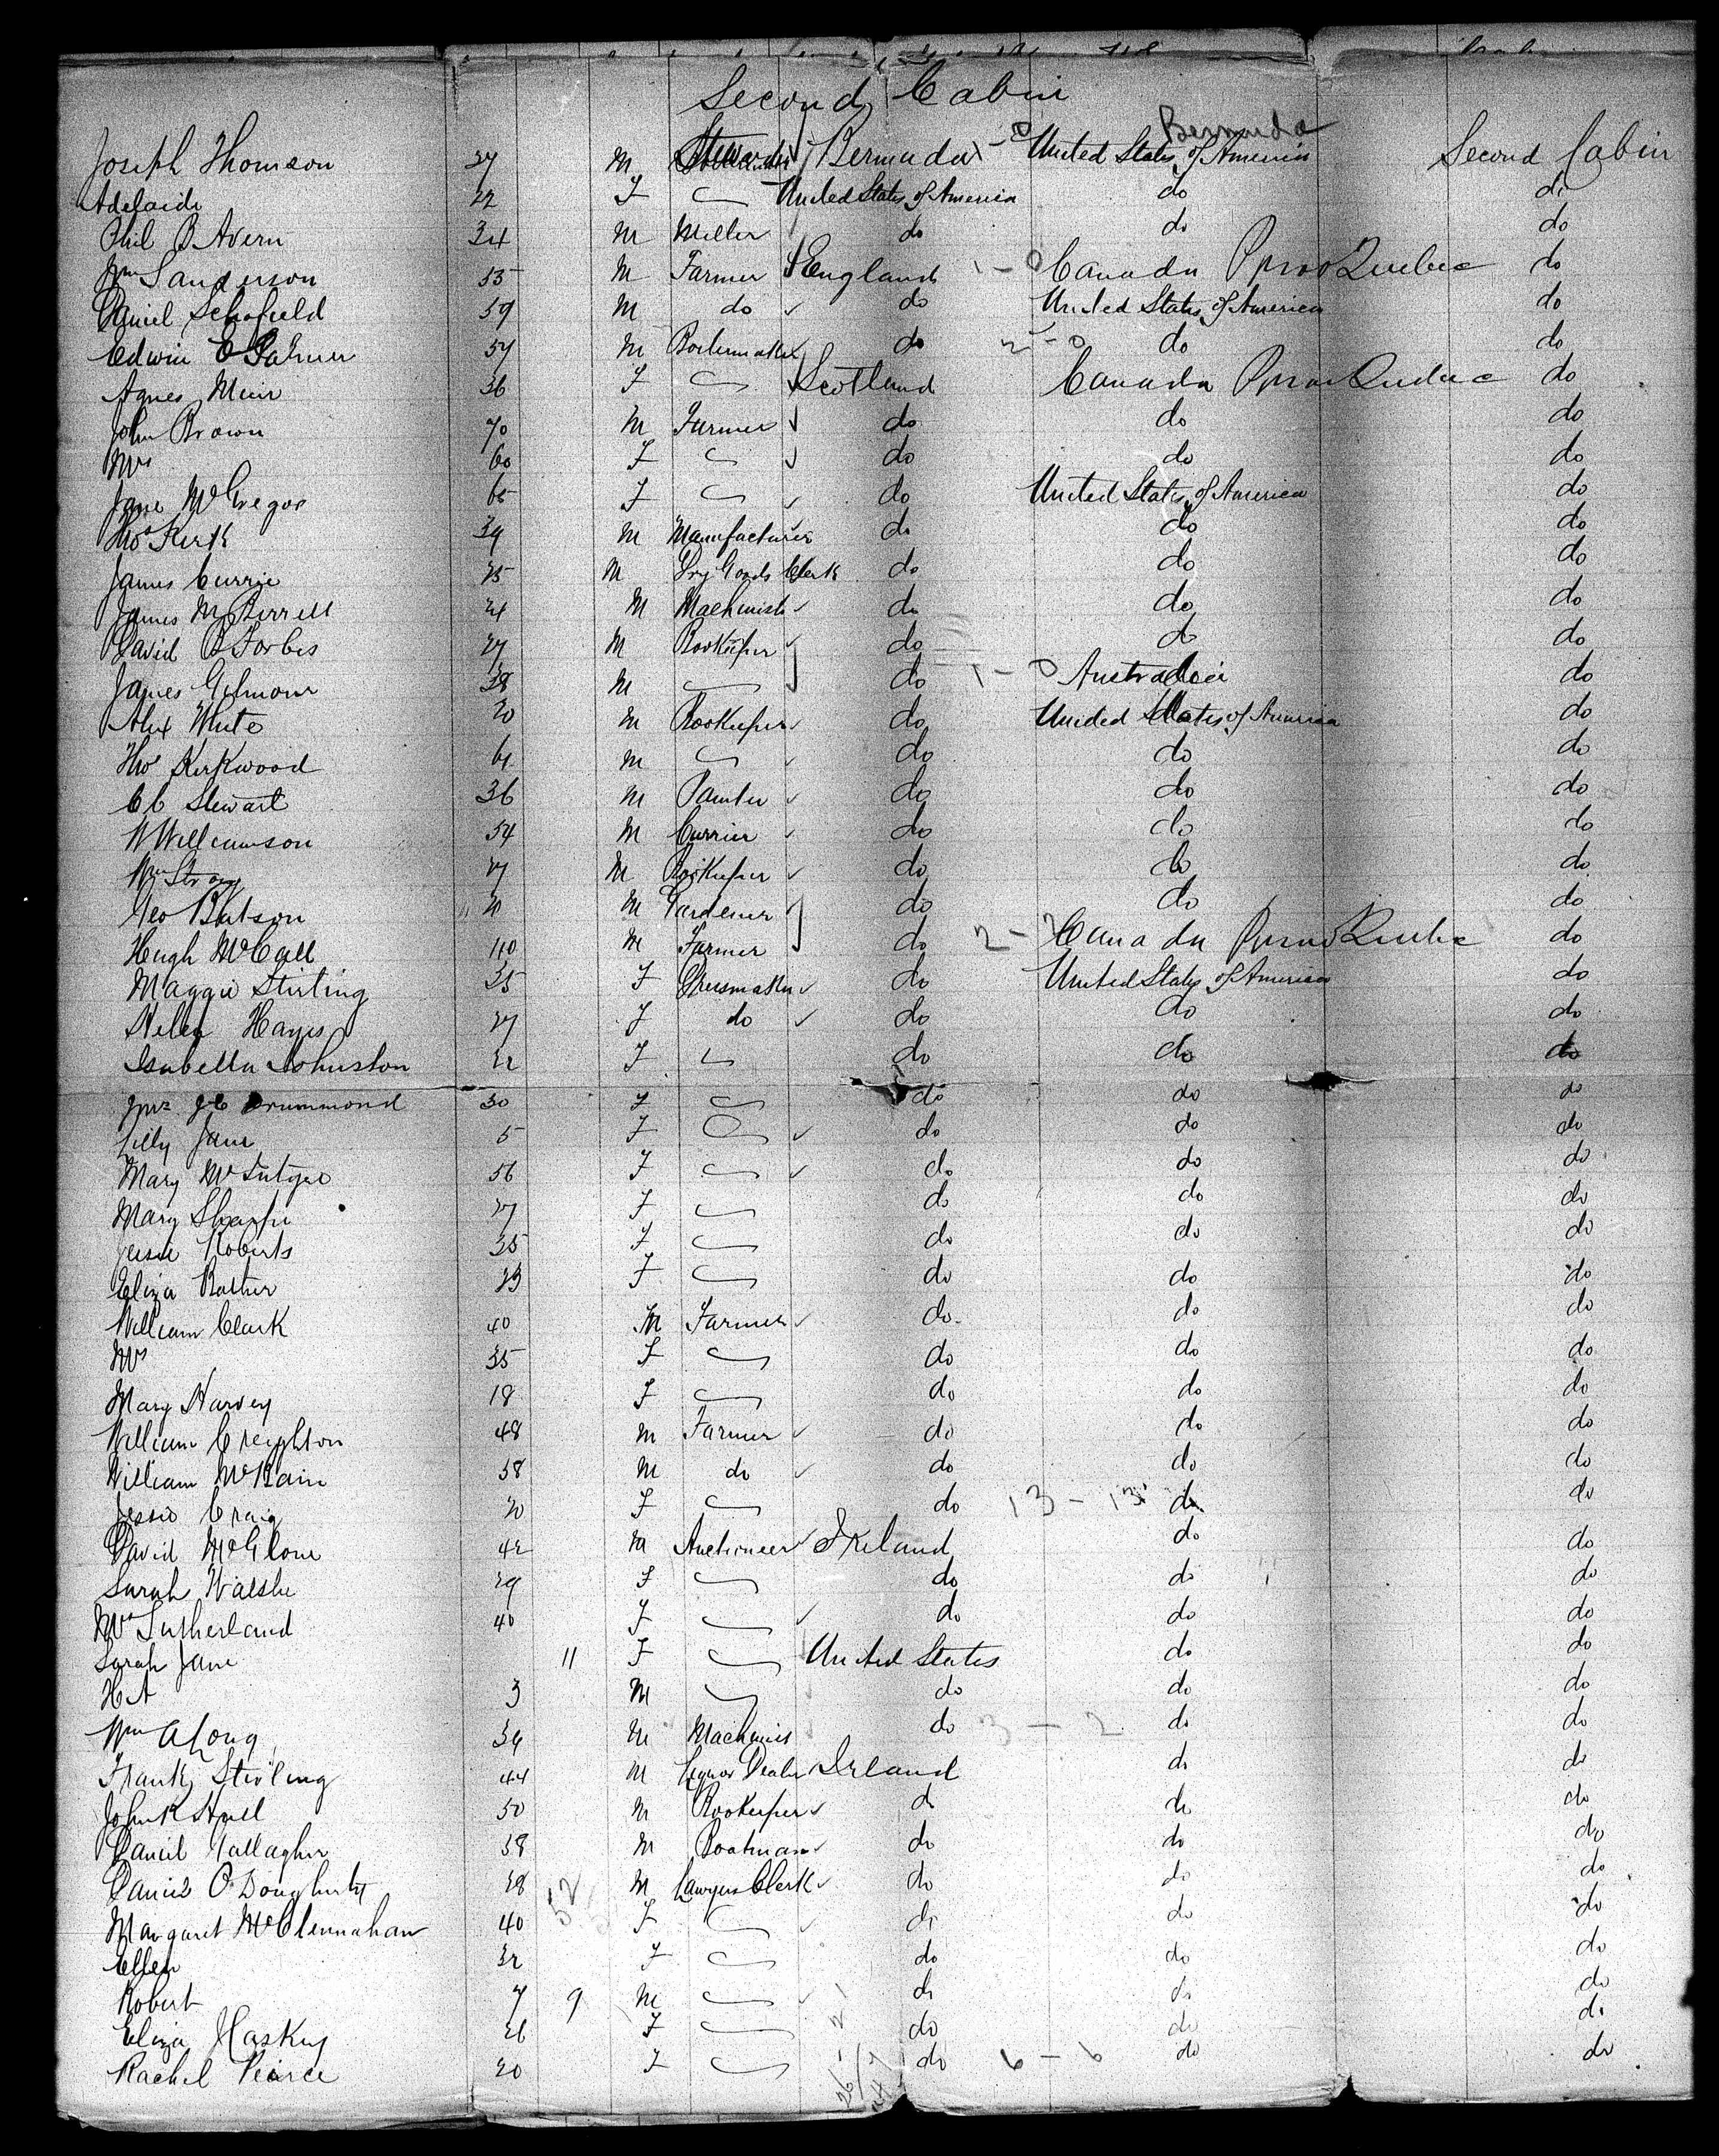 Second Cabin
Bermuda
Joseph Thomson 27 M Bermuda United States of America Second Cabin
Adelaide 22 F United States of America do do
Phil B Avern 34 M Miller do do do
Wm Sanderson 55 M Farmer England 1 - 0 Canada Prov Quebec do
Daniel Schofield 59 M do do United States of America do
Edwin E Palmer 57 M Boilermaker do 2 - 0 do do
Agnes Muir 36 F Scotland Canada Prov Quebec do
John Brown 70 M Farmer do do do
Mrs 60 F do do do
Jane McGregor 65 F do United States of America do
Thos Kirk 39 M Manufacturer do do do
James Currie 25 M Dry Goods Clerk do do do
James M Birrell 24 M Machinist do do do
David B Forbes 27 M Bookeeper do do do
James Gilmour 38 M do 1 - 0 Australia do
Alex White 20 M Bookeeper do United States of America do
Thos Kirkwood 61 M do do do
CC Stewart 36 M Painter do do do
W Williamson 54 M Currier do do do
Wm Strang 27 M Bookeeper do do do
Geo Batson 20 M Gardener do do do
Hugh McCall 40 M Farmer do 2 - Canada Prov Quebec do
Maggie Stirling 35 F Dressmaker do United States of America do
Helen Hayes 27 F do do do do
Isabella Johnston 22 F do do do
Mrs JC Drummond 30 F do do do
Lilly Jane 5 F do do do
Mary McIntyre 56 F do do do
Mary Sharpe 27 F do do do
Jessie Roberts 35 F do do do
Eliza Bather 23 F do do do
William Clark 40 M Farmer do do do
Mrs 35 F do do do
Mary Harvey 18 F do do do
William Creighton 48 M Farmer do do do
William McBain 58 M do do do do
Jessie Craig 20 F do 13 - 13 do do
David McGlone 42 M Auctioneer Ireland do do
Sarah Walshe 29 F do do do
Mrs Sutherland 40 F do do do
Sarah Jane 11 F United States do do
HA 3 M do do do
Wm A Long 34 M Machinis do 3 - 2 do do
Frank Stirling 44 M Liquor Dealer Ireland do do
John K Hall 50 M Bookeeper do do do
Daniel Gallagher 38 M Boatman do do do
O'Dougherty 28 52 M Lawyers Clerk do do do
Margaret McClennahan 40 F do do do
Ellen 32 F do do do
Robert 7 9 M do do do
Eliza J Haskey 26 F do do do
Rachel Pearce 20 F do 6 - 6 do do
26 - 21